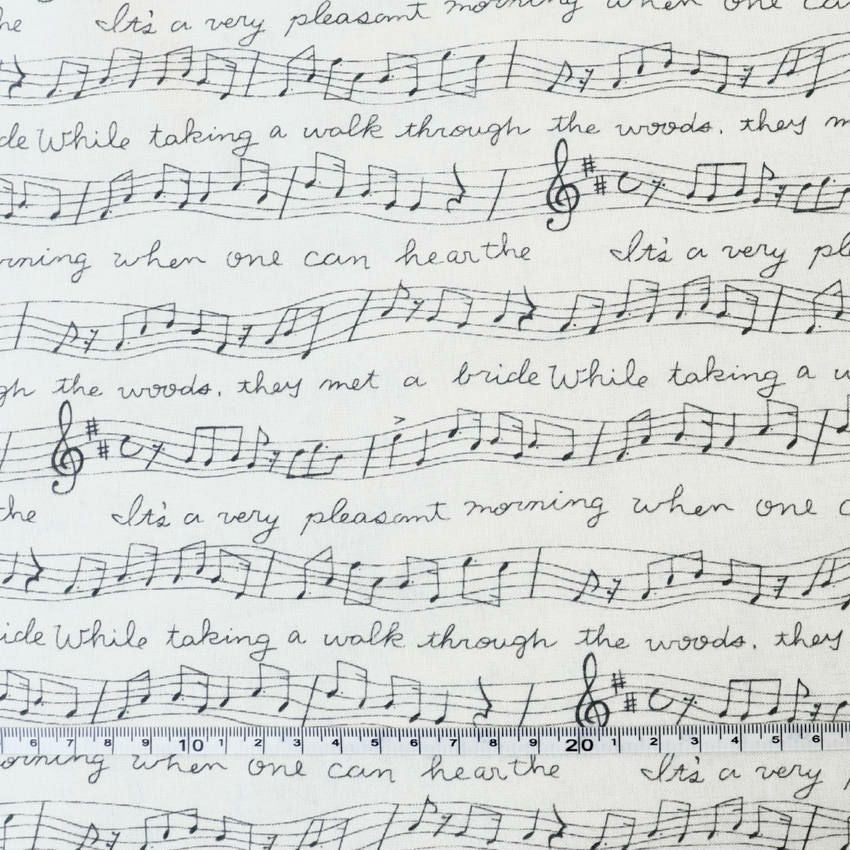 he It's a very pleasant morning when one ca
de While taking a walk through the woods, they m
rning when one can hear the It's a very ple
gh the woods, they met a bride While taking a w
the It's a very pleasant morning when one c
ide While taking a walk through the woods, they
6 7 8 9 10 1 2 3 4 5 6 7 8 9 20 1 2 3 4 5 6
orning when one can hear the It's a very p